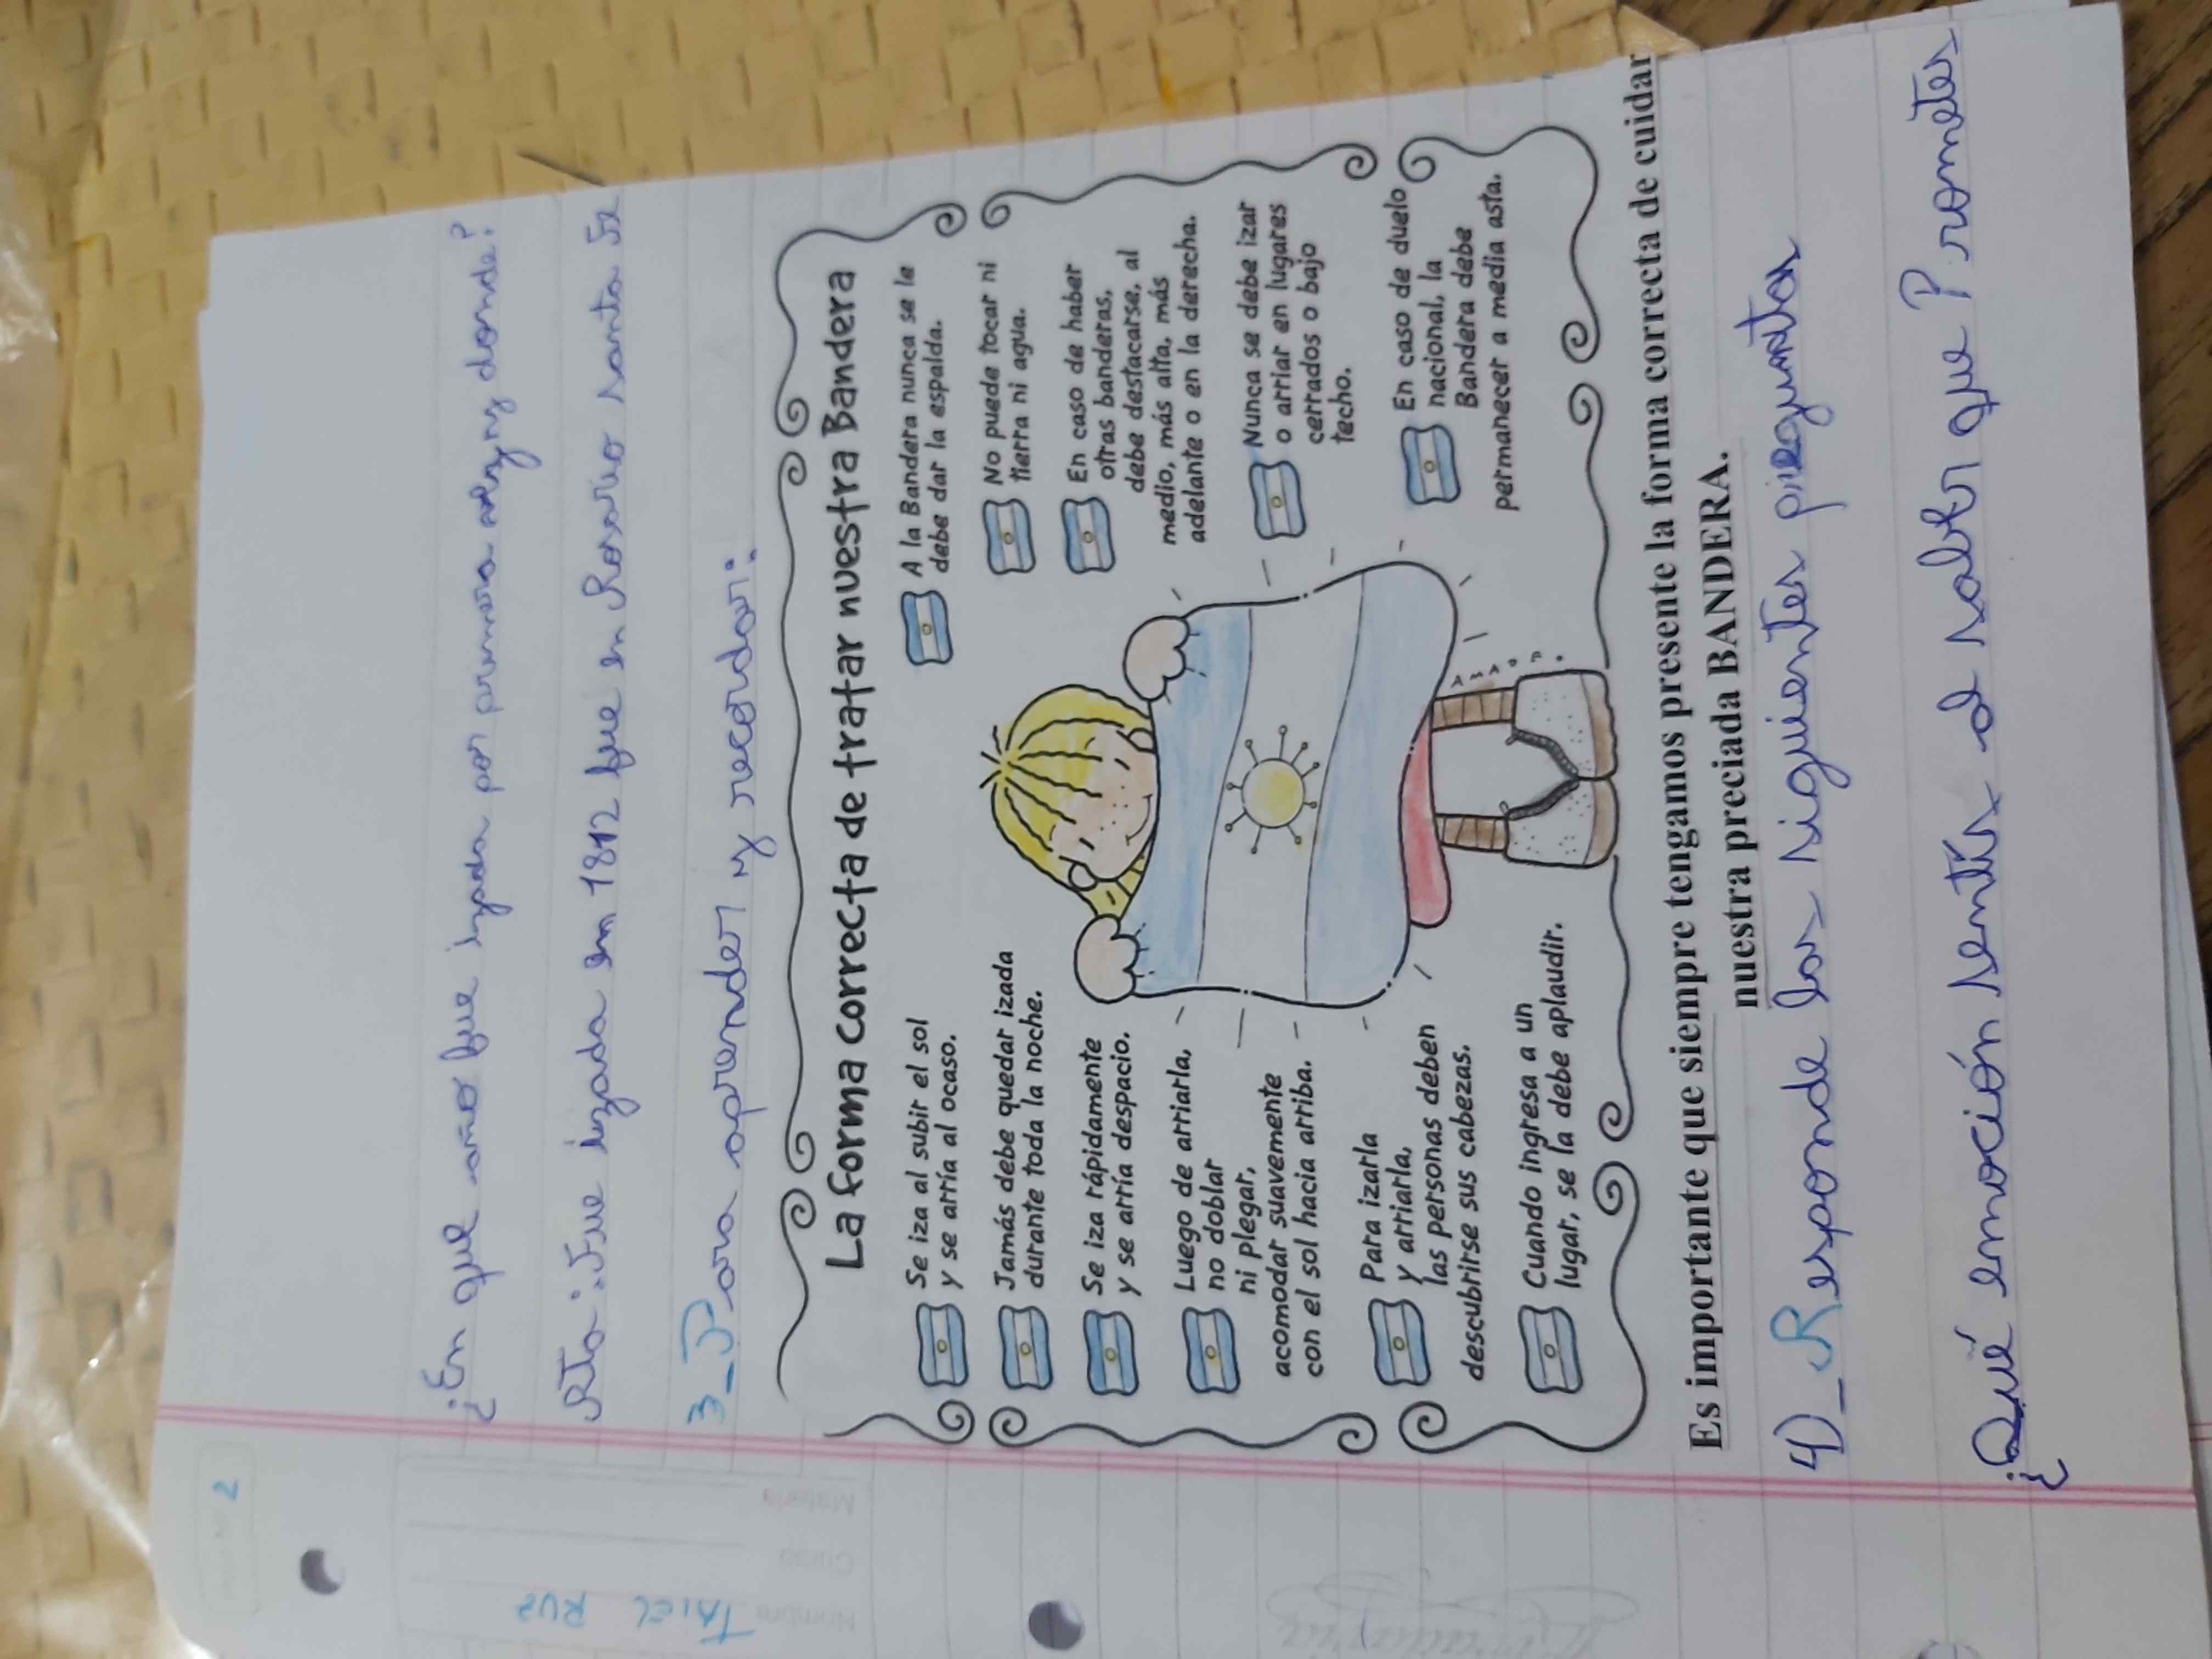 2
Nombre TAIEL RUZ
Curso
Materia
¿En que año fue izada por primera vez y donde?
Rta: Fue izada en 1812 fue en Rosario santa Fe
3_Para aprender y recordar:
La forma correcta de tratar nuestra Bandera
Se iza al subir el sol
y se arría al ocaso.
Jamás debe quedar izada
durante toda la noche.
Se iza rápidamente
y se arría despacio.
Luego de arriarla,
no doblar
ni plegar,
acomodar suavemente
con el sol hacia arriba.
Para izarla
y arriarla,
las personas deben
descubrirse sus cabezas.
Cuando ingresa a un
lugar, se la debe aplaudir.
A la Bandera nunca se le
debe dar la espalda.
No puede tocar ni
tierra ni agua.
En caso de haber
otras banderas,
debe destacarse, al
medio, más alta, más
adelante o en la derecha.
Nunca se debe izar
o arriar en lugares
cerrados o bajo
techo.
En caso de duelo
nacional, la
Bandera debe
permanecer a media asta.
Es importante que siempre tengamos presente la forma correcta de cuidar
nuestra preciada BANDERA.
4)_Responde las siguientes preguntas
¿Qué emoción sentís al saber que Prometes